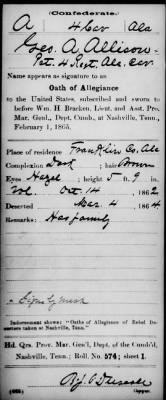 (Confederate.)
A | 4 Cav | Ala
Geo. A. Allison
Pvt. 4 Regt. Ala. Cav.
Name appears as signature to an
Oath of Allegiance
to the United States, subscribed and sworn to
before Wm. H. Bracken, Lieut. and Asst. Pro.
Mar. Genl., Dept. Cumb., at Nashville, Tenn.,
February 1, 1865.
Place of residence Franklin Co. Ala
Complexion Dark ; hair Brown
Eyes Hazel ; height 5 ft. 9 in.
Vol. Oct. 14 , 1862
Deserted Mar. 4 , 1864
Remarks: Has family
Signs by mark
Indorsement shows: "Oaths of Allegiance of Rebel De-
serters taken at Nashville, Tenn."
Hd. Qrs. Prov. Mar. Gen'l, Dept. of the Cumb'd,
Nashville, Tenn.; Roll No. 574; sheet 1.
Copyist.